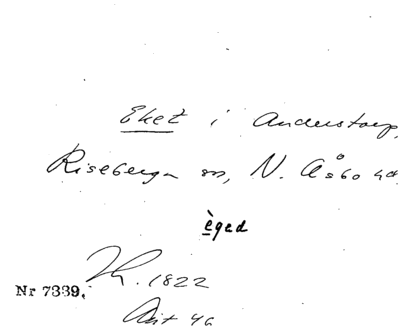 Eket i Anderstorp,
Riseberga sn, N. Åsbo hd
èged
Nr 7339. 1822
Akt 46